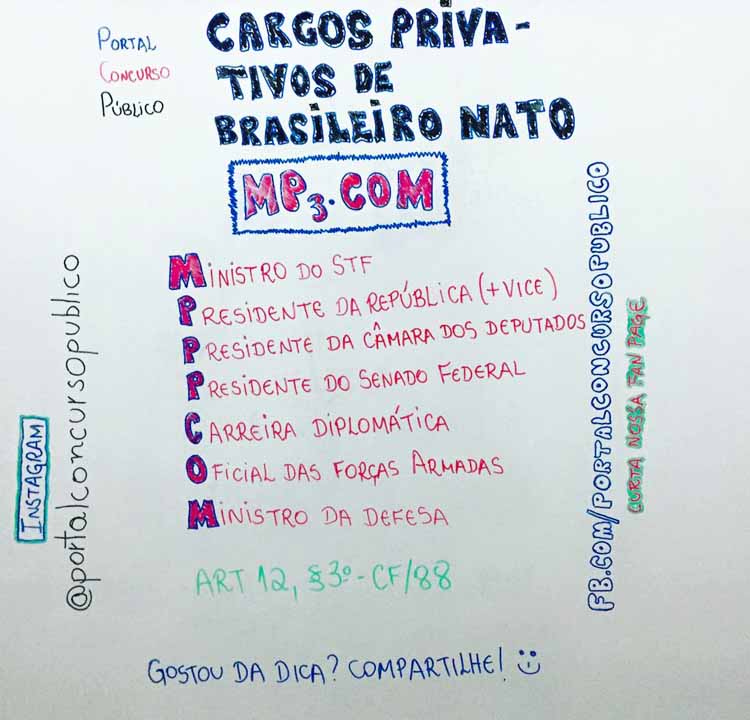 PORTAL
CONCURSO
PÚBLICO
CARGOS PRIVA-
TIVOS DE
BRASILEIRO NATO
MP3.COM
MINISTRO DO STF
PRESIDENTE DA REPÚBLICA (+VICE)
PRESIDENTE DA CÂMARA DOS DEPUTADOS
PRESIDENTE DO SENADO FEDERAL
CARREIRA DIPLOMÁTICA
OFICIAL DAS FORÇAS ARMADAS
MINISTRO DA DEFESA
ART 12, §3º - CF/88
GOSTOU DA DICA? COMPARTILHE!
INSTAGRAM
@portalconcursopublico
FB.COM/PORTALCONCURSOPUBLICO
CURTA NOSSA FAN PAGE